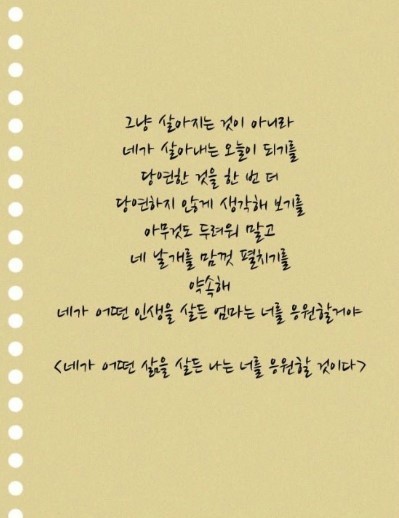 그냥 살아지는 것이 아니라
네가 살아내는 오늘이 되기를
당연한 것을 한 번 더
당연하지 않게 생각해 보기를
아무것도 두려워 말고
네 날개를 맘껏 펼치기를
약속해
네가 어떤 인생을 살든 엄마는 너를 응원할거야
<네가 어떤 삶을 살든 나는 너를 응원할 것이다>